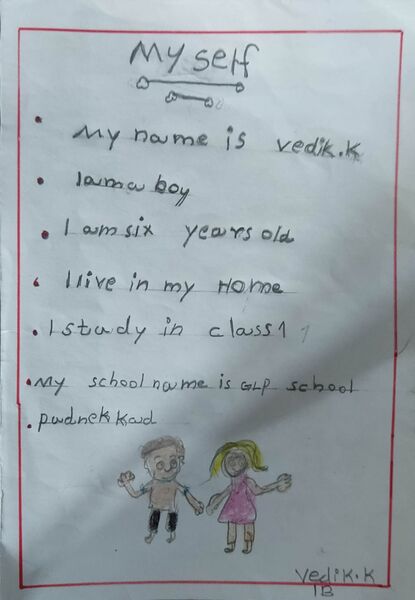 My self
My name is vedik.k
I am a boy
I am six years old
I live in my Home
I study in class 1 1
My school name is GLP school
pudnekkad
vedik.k
1B